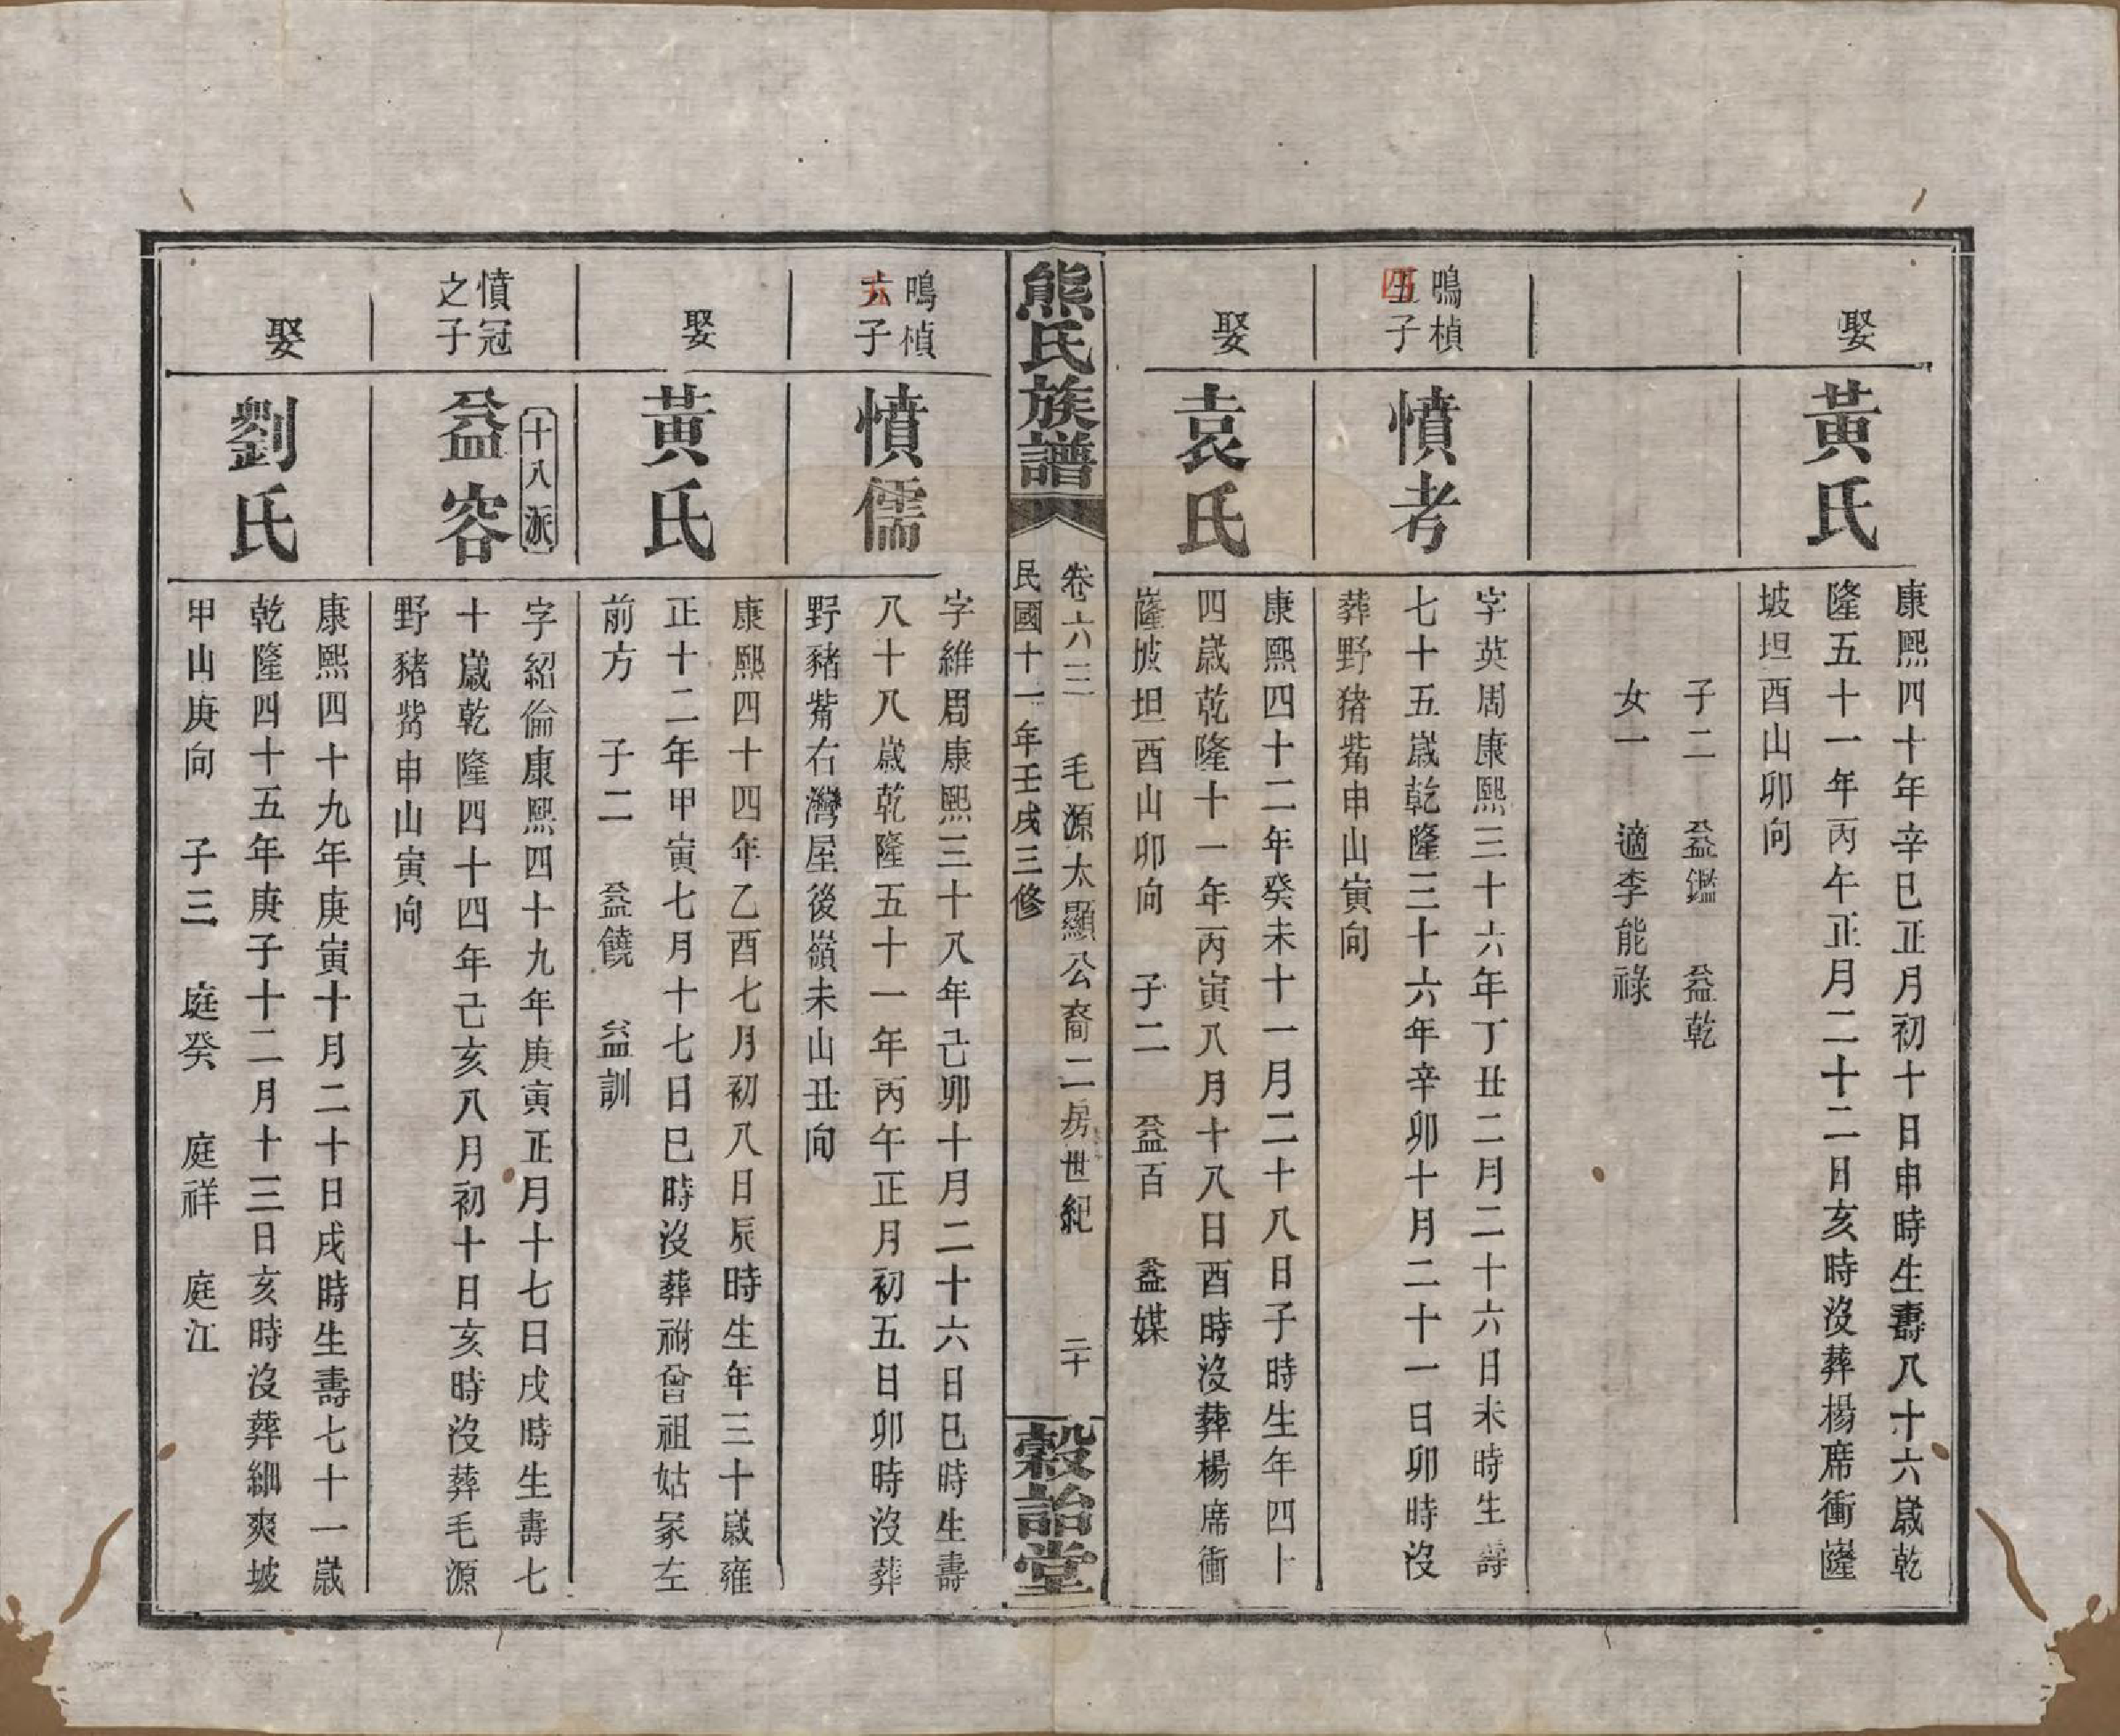 娶
黃氏
康熙四十年辛巳正月初十日申時生壽八十六歲乾
隆五十一年丙午正月二十二日亥時沒葬楊席衝嶐
坡坦酉山卯向
子二　益鑑　益乾
女一　適李能祿
鳴楨
四子
憤考
字英周康熙三十六年丁丑二月二十六日未時生壽
七十五歲乾隆三十六年辛卯十月二十一日卯時沒
葬野猪觜申山寅向
娶
袁氏
康熙四十二年癸未十一月二十八日子時生年四十
四歲乾隆十一年丙寅八月十八日酉時沒葬楊席衝
嶐坡坦酉山卯向　子二　益百　益媒
熊氏族譜
卷六三　毛源太顯公裔二房世紀　二十
民國十一年壬戌三修
穀詒堂
鳴楨
五子
憤儒
字維周康熙三十八年己卯十月二十六日巳時生壽
八十八歲乾隆五十一年丙午正月初五日卯時沒葬
野豬觜右灣屋後嶺未山丑向
娶
黃氏
康熙四十四年乙酉七月初八日辰時生年三十歲雍
正十二年甲寅七月十七日巳時沒葬祔曾祖姑冢左
前方　子二　益饒　益訓
憤冠
之子
十八派
益容
字紹倫康熙四十九年庚寅正月十七日戌時生壽七
十歲乾隆四十四年己亥八月初十日亥時沒葬毛源
野豬觜申山寅向
娶
劉氏
康熙四十九年庚寅十月二十日戌時生壽七十一歲
乾隆四十五年庚子十二月十三日亥時沒葬細爽坡
甲山庚向　子三　庭癸　庭祥　庭江